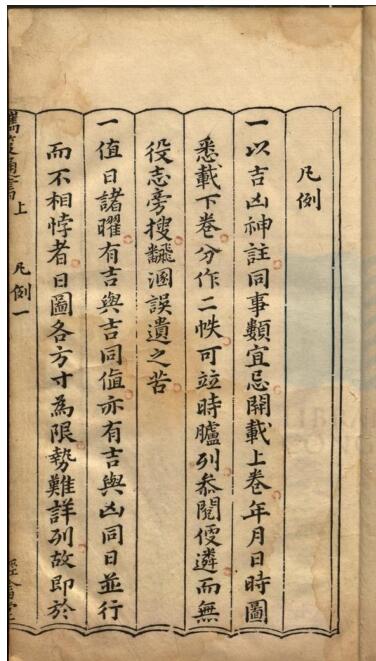 凡例
一以吉凶神註同事類宜忌開載上卷年月日時圖
悉載下卷分作二帙可竝時臚列叅閱便遴而無
役志旁搜飜溷誤遺之苦
一值日諸曜有吉與吉同值亦有吉與凶同日並行
而不相悖者日圖各方寸為限勢難詳列故即於
通書
上
凡例一